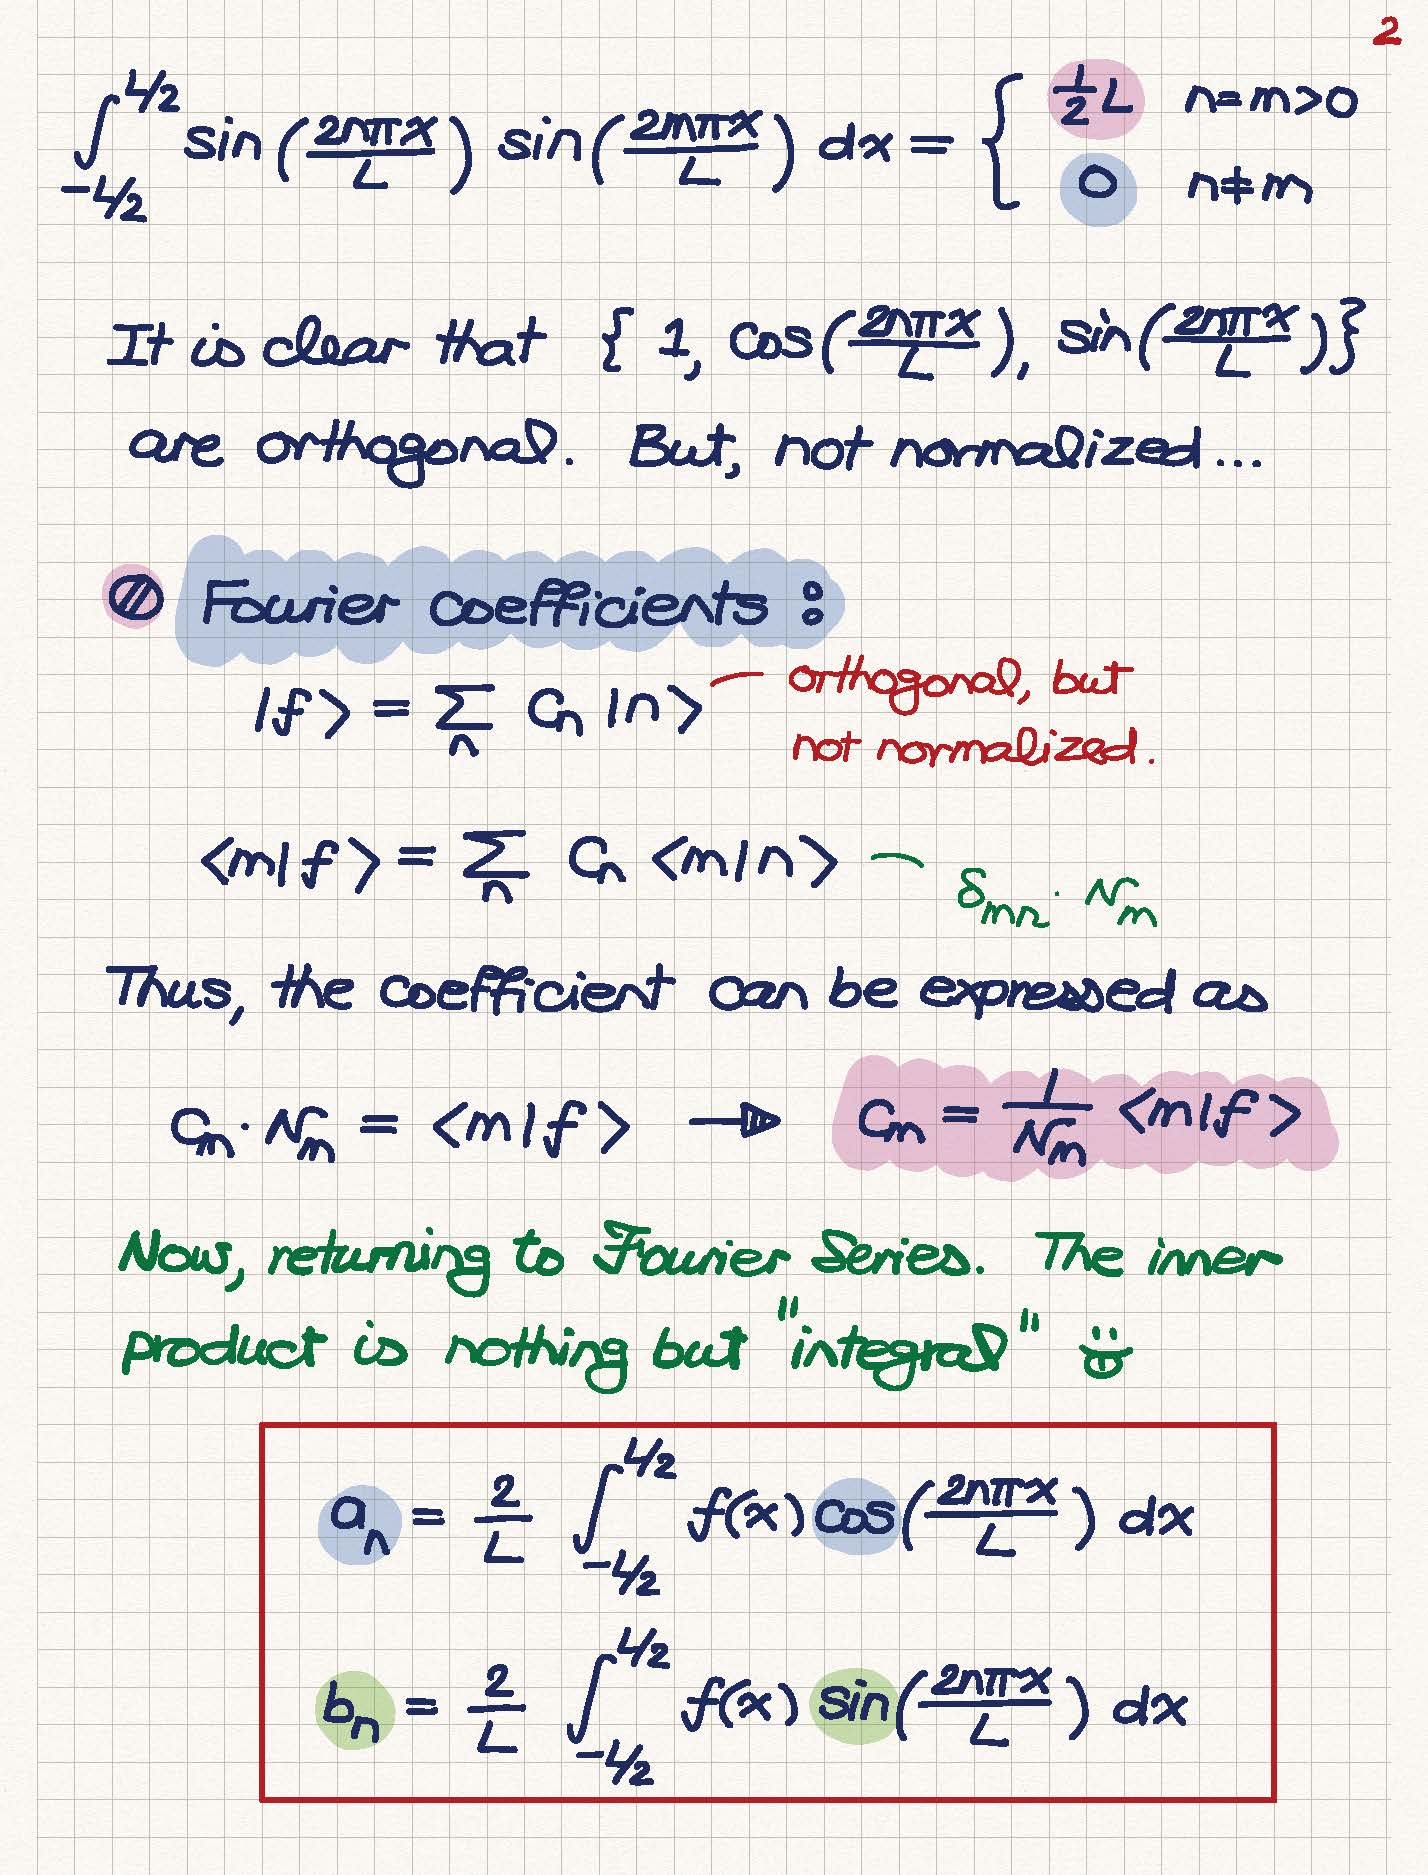 2
∫_{-L/2}^{L/2} sin(2nπx/L) sin(2mπx/L) dx = { ½L n=m>0
0 n≠m
It is clear that { 1, cos(2nπx/L), sin(2nπx/L)}
are orthogonal. But, not normalized...
Fourier coefficients :
|f> = Σ_n C_n |n> — orthogonal, but
not normalized.
<m|f> = Σ_n C_n <m|n> — δ_mn · N_m
Thus, the coefficient can be expressed as
C_m · N_m = <m|f> → C_m = 1/N_m <m|f>
Now, returning to Fourier Series. The inner
product is nothing but "integral" ☺
a_n = 2/L ∫_{-L/2}^{L/2} f(x) cos(2nπx/L) dx
b_n = 2/L ∫_{-L/2}^{L/2} f(x) sin(2nπx/L) dx